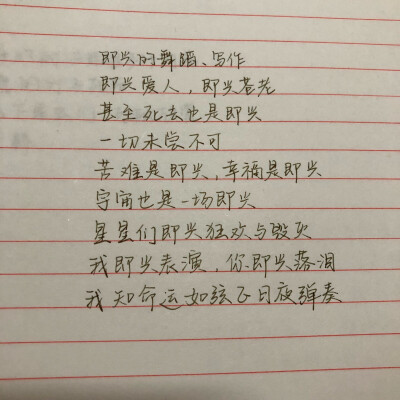 即兴的舞蹈、写作
即兴爱人，即兴苍老
甚至死去也是即兴
一切未尝不可
苦难是即兴，幸福是即兴
宇宙也是一场即兴
星星们即兴狂欢与毁灭
我即兴表演，你即兴落泪
我知命运如孩子日夜弹奏